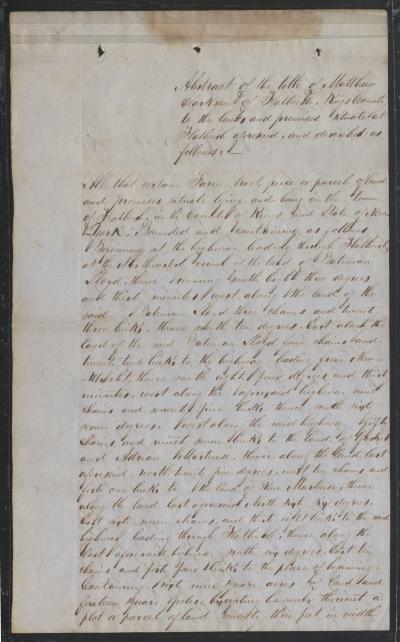 Abstract of the title of Matthew
Clarkson of Flatbush, Kings County
to the lands and premises situate at
Flatbush aforesaid, and described as
follows:
All that certain Farm, tract, piece or parcel of land
and premises situate lying and being in the Town
of Flatbush, in the County of Kings and State of New
York: Bounded and Containing as follows
Beginning at the highway leading through Flatbush
at the corner of the land of Bateman
Lloyd, thence running South Eighty three degrees
and thirty minutes west along the land of the
said Bateman Lloyd three chains and twenty
three links, thence south ten degrees East along the
land of the said Bateman Lloyd four chains and
twenty two links to the highway leading from New
Utrecht, thence south eighty four degrees and thirty
minutes west along the aforesaid highway nine
chains and seventy five links, thence north sixty
seven degrees west along the said highway
chains and ninety links to the land of
and Adrian Martense, thence along the land last
aforesaid north twenty five degrees west ten chains and
forty one links to the land of Martense, thence
along the land last aforesaid North sixty six degrees
East sixty seven chains, and thirty eight links to the said
highway leading through Flatbush, thence along the
last aforesaid highway south six degrees East ten
chains and forty four links to the place of beginning,
Containing sixty nine square acres of land and
fourteen square poles. Excepting thereout a
plot or parcel of land twenty three feet in width